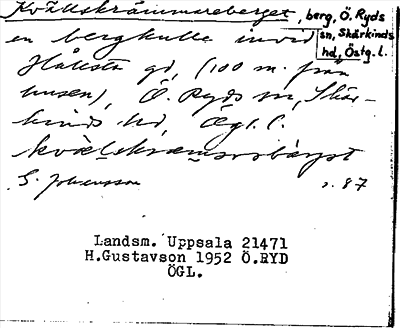 Kvällskrämmareberget, berg, Ö. Ryds
sn, Skärkinds
hd, Östg. l.
en bergkulle invid
Hållsta gd, (100 m. från
husen), Ö. Ryds sn, Skär-
kinds hd, Ögl. l.
kvälskræmarebärjet
S. Johansson s. 87
Landsm. Uppsala 21471
H.Gustavson 1952 Ö.RYD
ÖGL.